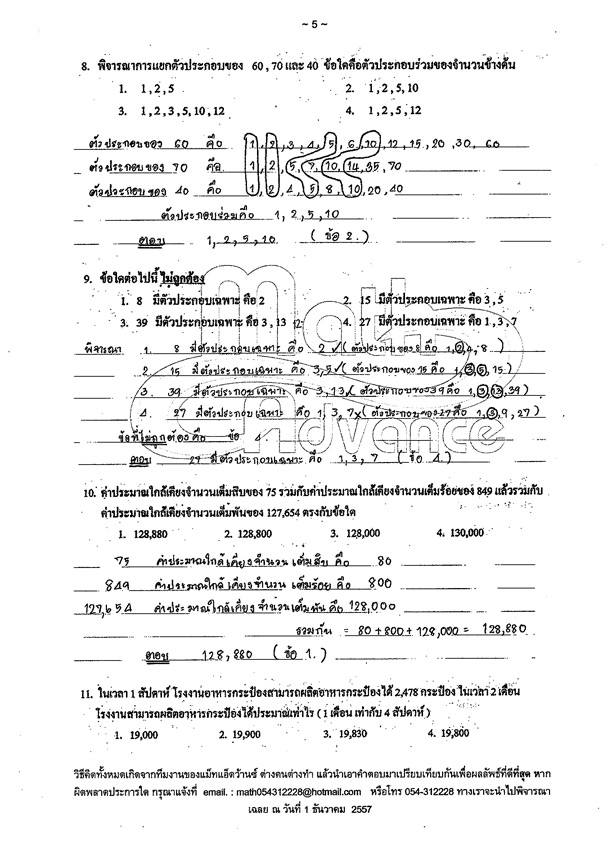 ~ 5 ~
8. พิจารณาการแยกตัวประกอบของ 60 , 70 และ 40 ข้อใดคือตัวประกอบร่วมของจำนวนข้างต้น
1. 1 , 2 , 5 2. 1 , 2 , 5 , 10
3. 1 , 2 , 3 , 5 , 10 , 12 4. 1 , 2 , 5 , 12
ตัวประกอบของ 60 คือ 1, 2, 3, 4, 5, 6, 10, 12, 15, 20, 30, 60
ตัวประกอบของ 70 คือ 1, 2, 5, 7, 10, 14, 35, 70
ตัวประกอบของ 40 คือ 1, 2, 4, 5, 8, 10, 20, 40
ตัวประกอบร่วมคือ 1, 2, 5, 10
ตอบ 1, 2, 5, 10 ( ข้อ 2. )
9. ข้อใดต่อไปนี้ ไม่ถูกต้อง
1. 8 มีตัวประกอบเฉพาะ คือ 2 2. 15 มีตัวประกอบเฉพาะ คือ 3 , 5
3. 39 มีตัวประกอบเฉพาะ คือ 3 , 13 4. 27 มีตัวประกอบเฉพาะ คือ 1 , 3 , 7
พิจารณา 1. 8 มีตัวประกอบเฉพาะ คือ 2 ✓ ( ตัวประกอบของ 8 คือ 1, 2, 4, 8 )
2. 15 มีตัวประกอบเฉพาะ คือ 3, 5 ✓ ( ตัวประกอบของ 15 คือ 1, 3, 5, 15 )
3. 39 มีตัวประกอบเฉพาะ คือ 3, 13 ✓ ( ตัวประกอบของ 39 คือ 1, 3, 13, 39 )
4. 27 มีตัวประกอบเฉพาะ คือ 1, 3, 7 x ( ตัวประกอบของ 27 คือ 1, 3, 9, 27 )
ข้อที่ไม่ถูกต้องคือ ข้อ 4.
ตอบ 27 มีตัวประกอบเฉพาะ คือ 1, 3, 7 ( ข้อ 4. )
Math
advance
10. ค่าประมาณใกล้เคียงจำนวนเต็มสิบของ 75 รวมกับค่าประมาณใกล้เคียงจำนวนเต็มร้อยของ 849 แล้วรวมกับ
ค่าประมาณใกล้เคียงจำนวนเต็มพันของ 127,654 ตรงกับข้อใด
1. 128,880 2. 128,800 3. 128,000 4. 130,000
75 ค่าประมาณใกล้เคียงจำนวนเต็มสิบ คือ 80
849 ค่าประมาณใกล้เคียงจำนวนเต็มร้อย คือ 800
127,654 ค่าประมาณใกล้เคียงจำนวนเต็มพัน คือ 128,000
รวมกัน = 80 + 800 + 128,000 = 128,880
ตอบ 128,880 ( ข้อ 1. )
11. ในเวลา 1 สัปดาห์ โรงงานอาหารกระป๋องสามารถผลิตอาหารกระป๋องได้ 2,478 กระป๋อง ในเวลา 2 เดือน
โรงงานสามารถผลิตอาหารกระป๋องได้ประมาณเท่าไร ( 1 เดือน เท่ากับ 4 สัปดาห์ )
1. 19,000 2. 19,900 3. 19,830 4. 19,800
วิธีคิดทั้งหมดเกิดจากทีมงานของแม็ทแอ็ดว้านซ์ ต่างคนต่างทำ แล้วนำเอาคำตอบมาเปรียบเทียบกันเพื่อผลลัพธ์ที่ดีที่สุด หาก
ผิดพลาดประการใด กรุณาแจ้งที่ email. : math054312228@hotmail.com หรือโทร 054-312228 ทางเราจะนำไปพิจารณา
เฉลย ณ วันที่ 1 ธันวาคม 2557